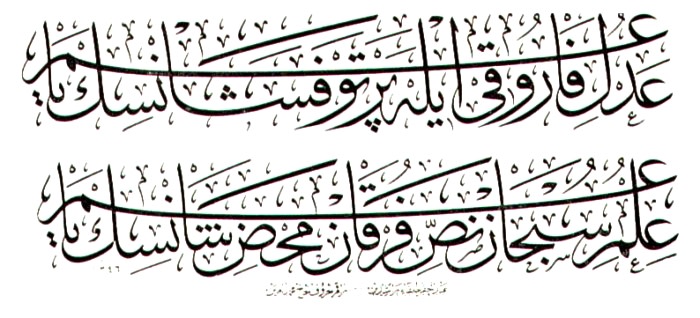 عدل فاروقی ایله پرتوفشانسك یا عمر
علم سبحان نص فرقان محض شانسك یا عمر